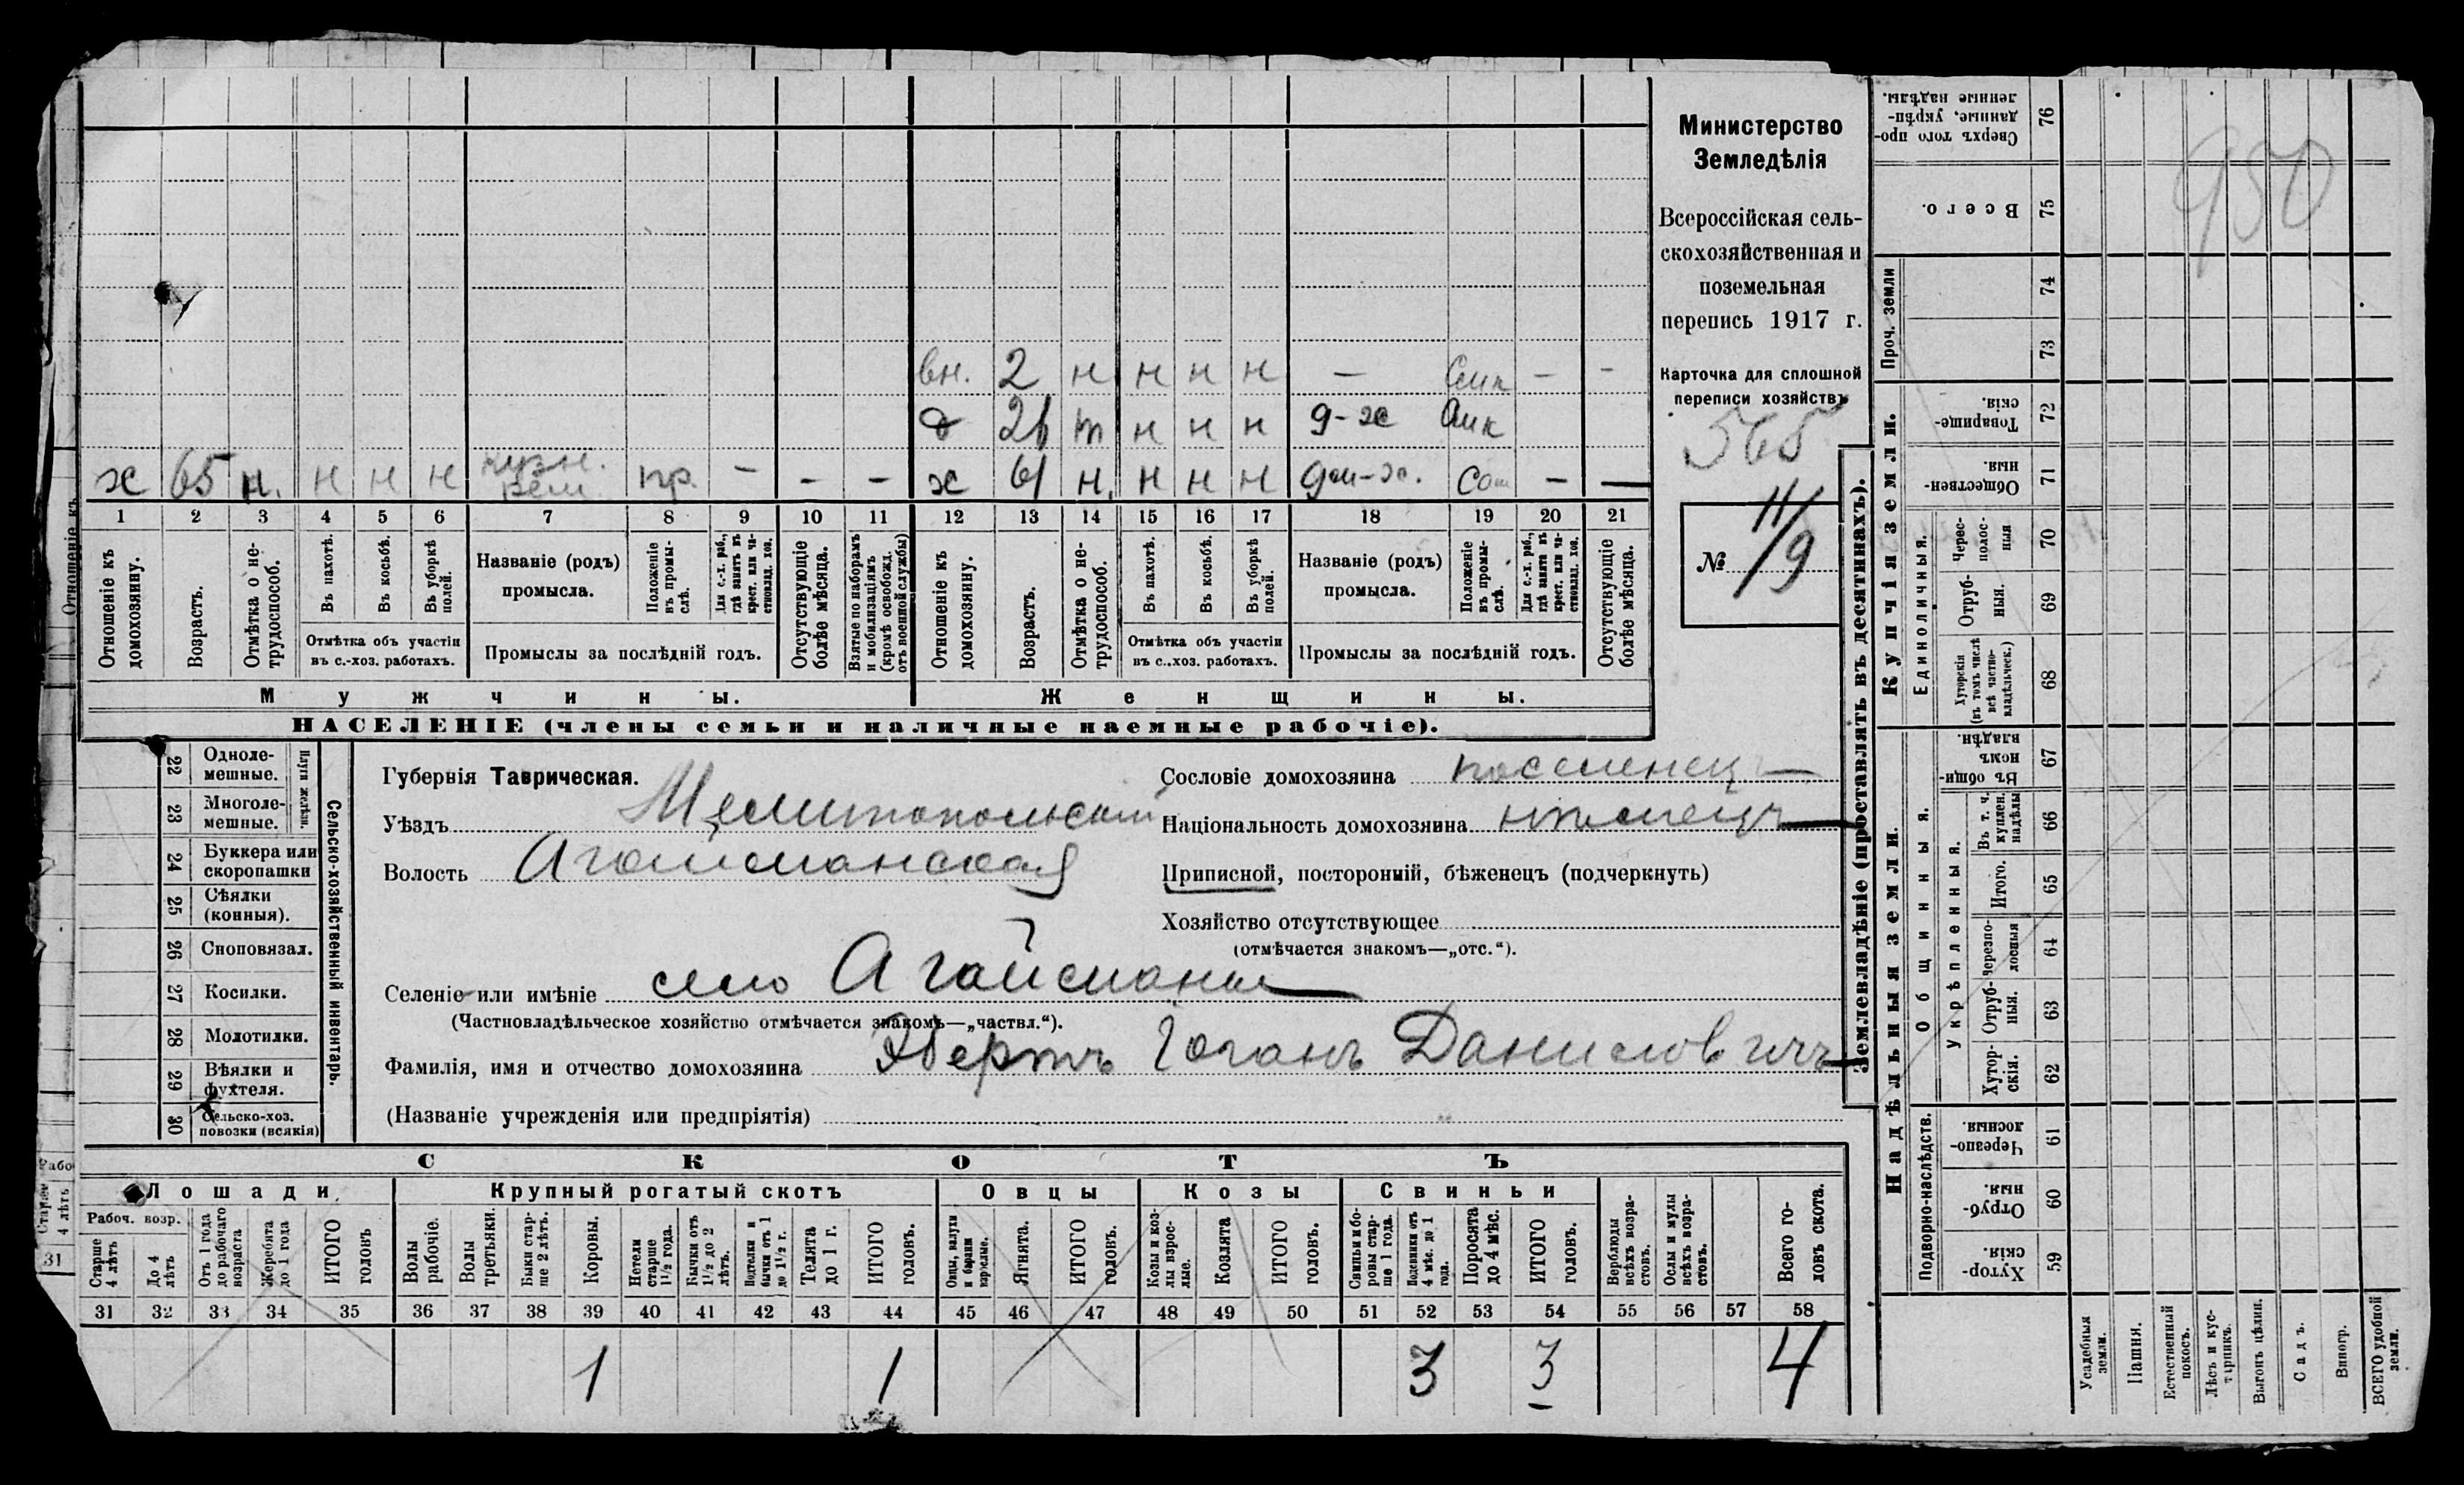 Министерство
Земледѣлія
Всероссійская сель-
скохозяйственная и
поземельная
перепись 1917 г.
Карточка для сплошной
переписи хозяйствъ
565
№ 11/9
вн. 2 н н н н —  — -
26 т н н н д-хо
х 65 н. н н н пр. — — — х 61 н. н н н — —
1 2 3 4 5 6 7 8 9 10 11 12 13 14 15 16 17 18 19 20 21
Отношеніе къ домохозяину.
Возрастъ.
Отмѣтка о не-трудоспособ.
Въ пахотѣ.
Въ косьбѣ.
Въ уборкѣ полей.
Отмѣтка объ участіи въ с.-хоз. работахъ.
Названіе (родъ) промысла.
Положеніе въ промы-слѣ.
Для с.-х. раб., гдѣ занятъ въ крест. или ча-стновлад. хоз.
Промыслы за послѣдній годъ.
Отсутствующіе болѣе мѣсяца.
Взятые по наборамъ и мобилизаціямъ (кромѣ освобожд. отъ военной службы)
Отношеніе къ домохозяину.
Возрастъ.
Отмѣтка о не-трудоспособ.
Въ пахотѣ.
Въ косьбѣ.
Въ уборкѣ полей.
Отмѣтка объ участіи въ с..хоз. работахъ.
Названіе (родъ) промысла.
Положеніе въ промы-слѣ.
Для с.-х. раб., гдѣ занятъ въ крест. или ча-стновлад. хоз.
Промыслы за послѣдній годъ.
Отсутствующіе болѣе мѣсяца.
Мужчины.
Женщины.
НАСЕЛЕНІЕ (члены семьи и наличные наемные рабочіе).
22 Одноле-мешные.
23 Многоле-мешные.
Плуги желѣзн.
24 Буккера или скоропашки
25 Сѣялки (конныя).
26 Сноповязал.
27 Косилки.
28 Молотилки.
29 Вѣялки и фухтеля.
30 Сельско-хоз. повозки (всякія)
Сельско-хозяйственный инвентарь.
Губернія Таврическая.
Уѣздъ Мелитопольский
Волость Агайманская
Селеніе или имѣніе село Агайманы
(Частновладѣльческое хозяйство отмѣчается знакомъ—„частвл.“).
Фамилія, имя и отчество домохозяина Эвертъ Іоганъ Даниловичъ
(Названіе учрежденія или предпріятія)
Сословіе домохозяина поселенецъ
Національность домохозяина нѣмецъ
Приписной, посторонній, бѣженецъ (подчеркнуть)
Хозяйство отсутствующее
(отмѣчается знакомъ—„отс.“).
СКОТЪ
Лошади
Крупный рогатый скотъ
Овцы
Козы
Свиньи
Рабоч. возр.
Старше 4 лѣтъ
До 4 лѣтъ
Отъ 1 года до рабочаго возраста
Жеребята до 1 года
ИТОГО головъ
Волы рабочіе.
Волы третьяки.
Быки стар-ше 2 лѣтъ.
Коровы.
Нетели старше 1½ года.
Бычки отъ 1½ до 2 лѣтъ.
Подтелки и бычки отъ 1 до 1½ г.
Телята до 1 г.
ИТОГО головъ.
Овцы, валухи и бараны взрослые.
Ягнята.
ИТОГО головъ.
Козы и коз-лы взрос-лые.
Козлята
ИТОГО головъ.
Свиньи и бо-ровы стар-ше 1 года.
Подсвинки отъ 4 мѣс. до 1 года.
Поросята до 4 мѣс.
ИТОГО головъ.
Верблюды всѣхъ возра-стовъ.
Ослы и мулы всѣхъ возра-стовъ.
Всего го-ловъ скота.
31 32 33 34 35 36 37 38 39 40 41 42 43 44 45 46 47 48 49 50 51 52 53 54 55 56 57 58
1 1 3 3 4
Землевладѣніе (проставлять въ десятинахъ).
Надѣльныя земли.
Купчія земли.
Проч. земли
Подворно-наслѣдств.
Общинныя.
Укрѣпленныя.
Единоличныя.
Сверхъ того про-данные, укрѣп-ленные надѣлы. 76
Всего. 75
74
73
Товарище-скія. 72
Обществен-ныя. 71
Черес-полос-ныя 70
Отруб-ныя. 69
Хуторскія (въ томъ числѣ всѣ частно-владѣльческ.) 68
Въ общи-номъ владѣн. 67
Въ т. ч. куплен. надѣлы 66
Итого. 65
Черезпо-лосныя 64
Отруб-ныя. 63
Хутор-скія. 62
Черезпо-лосныя. 61
Отруб-ныя. 60
Хутор-скія. 59
Усадебныя земли.
Пашня.
Естественный покосъ.
Лѣсъ и кус-тарникъ.
Выгонъ цѣлин.
Садъ.
Виногр.
ВСЕГО удобной земли.
950
Отношеніе къ
Рабо
Старше 4 лѣтъ
31